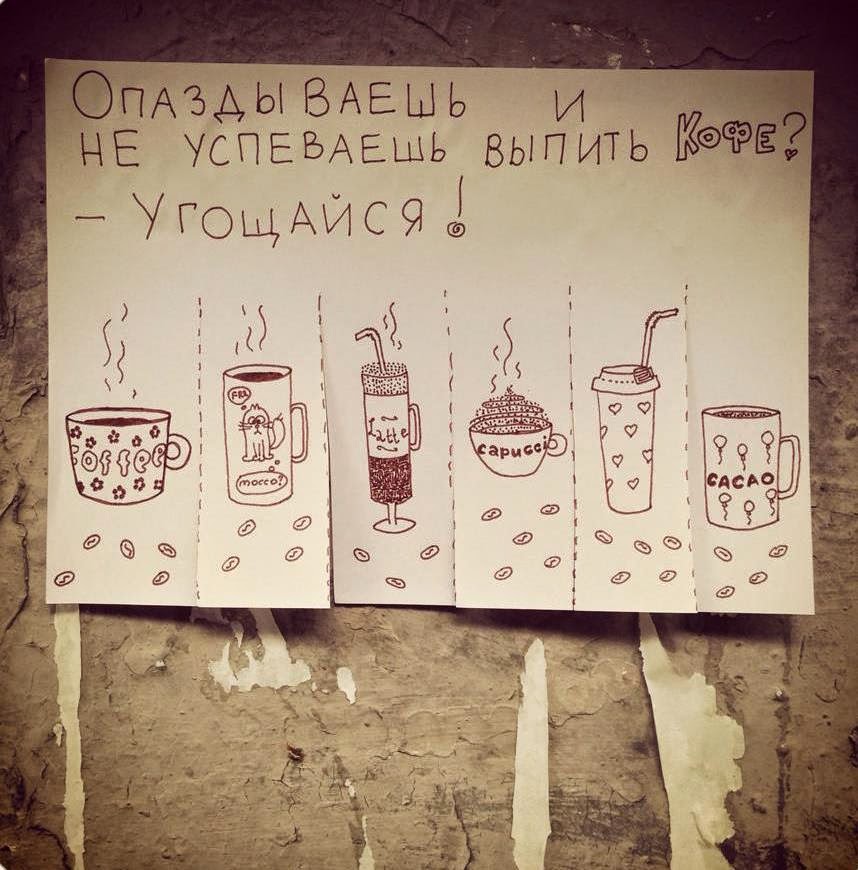 Опаздываешь и
не успеваешь выпить Кофе?
- Угощайся!
Coffee
FRL
mocco?
Latte
Capucci
CACAO